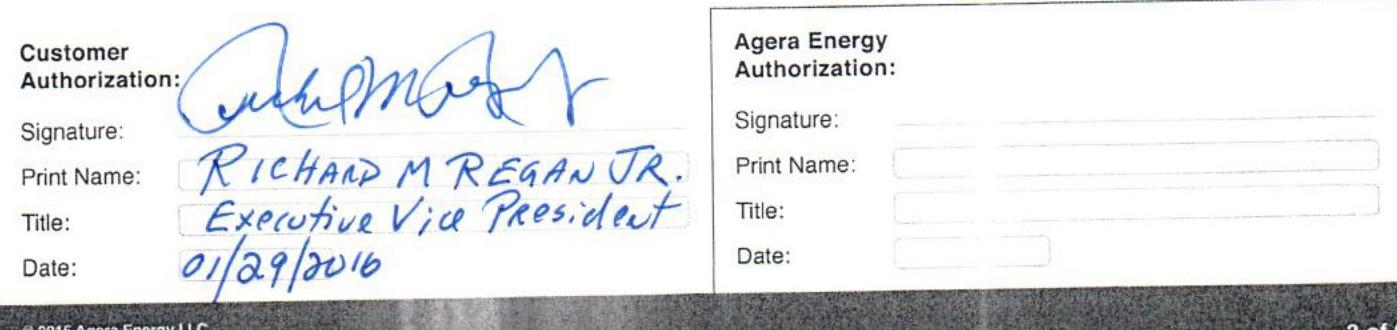 Customer
Authorization:
Signature:
Print Name: RICHARD M REGAN JR.
Title: Executive Vice President
Date: 01/29/2016
Agera Energy
Authorization:
Signature:
Print Name:
Title:
Date:
© 2015 Agera Energy LLC